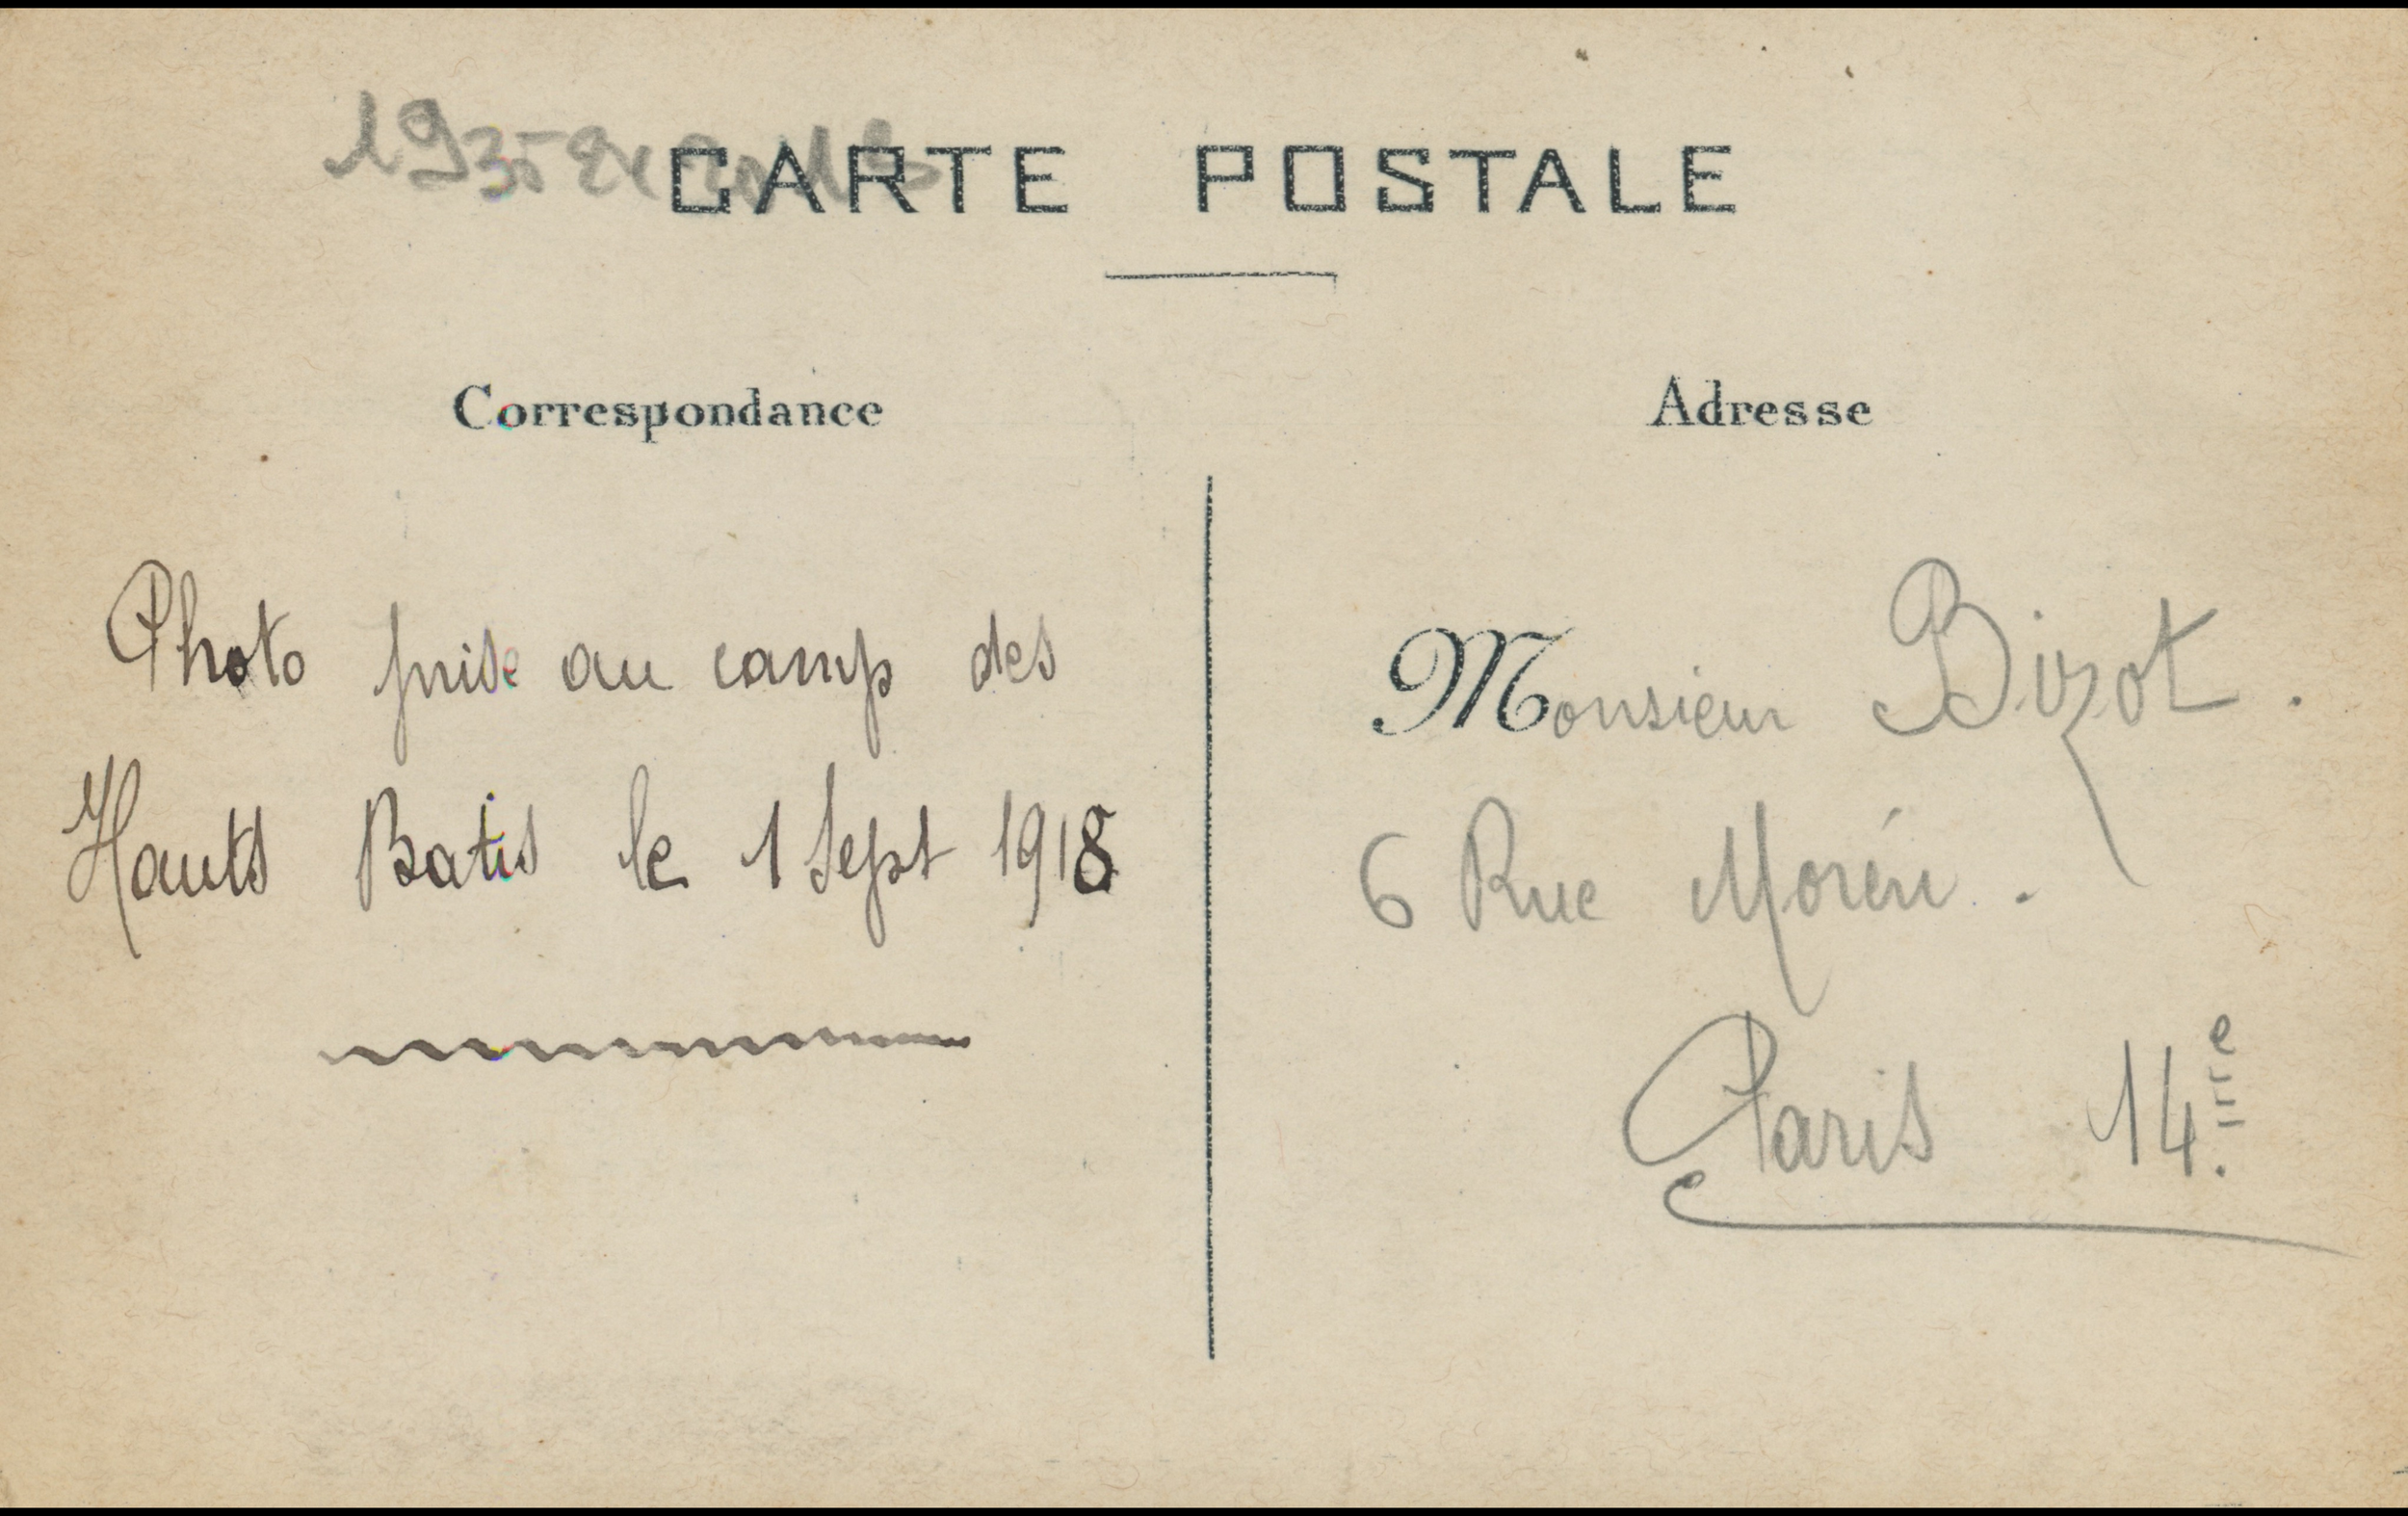 CARTE POSTALE
Correspondance
Photo prise au camp des
Hauts Batis le 1 Sept 1918
Adresse
Monsieur Bizot.
6 Rue Moréri.
Paris 14.ème